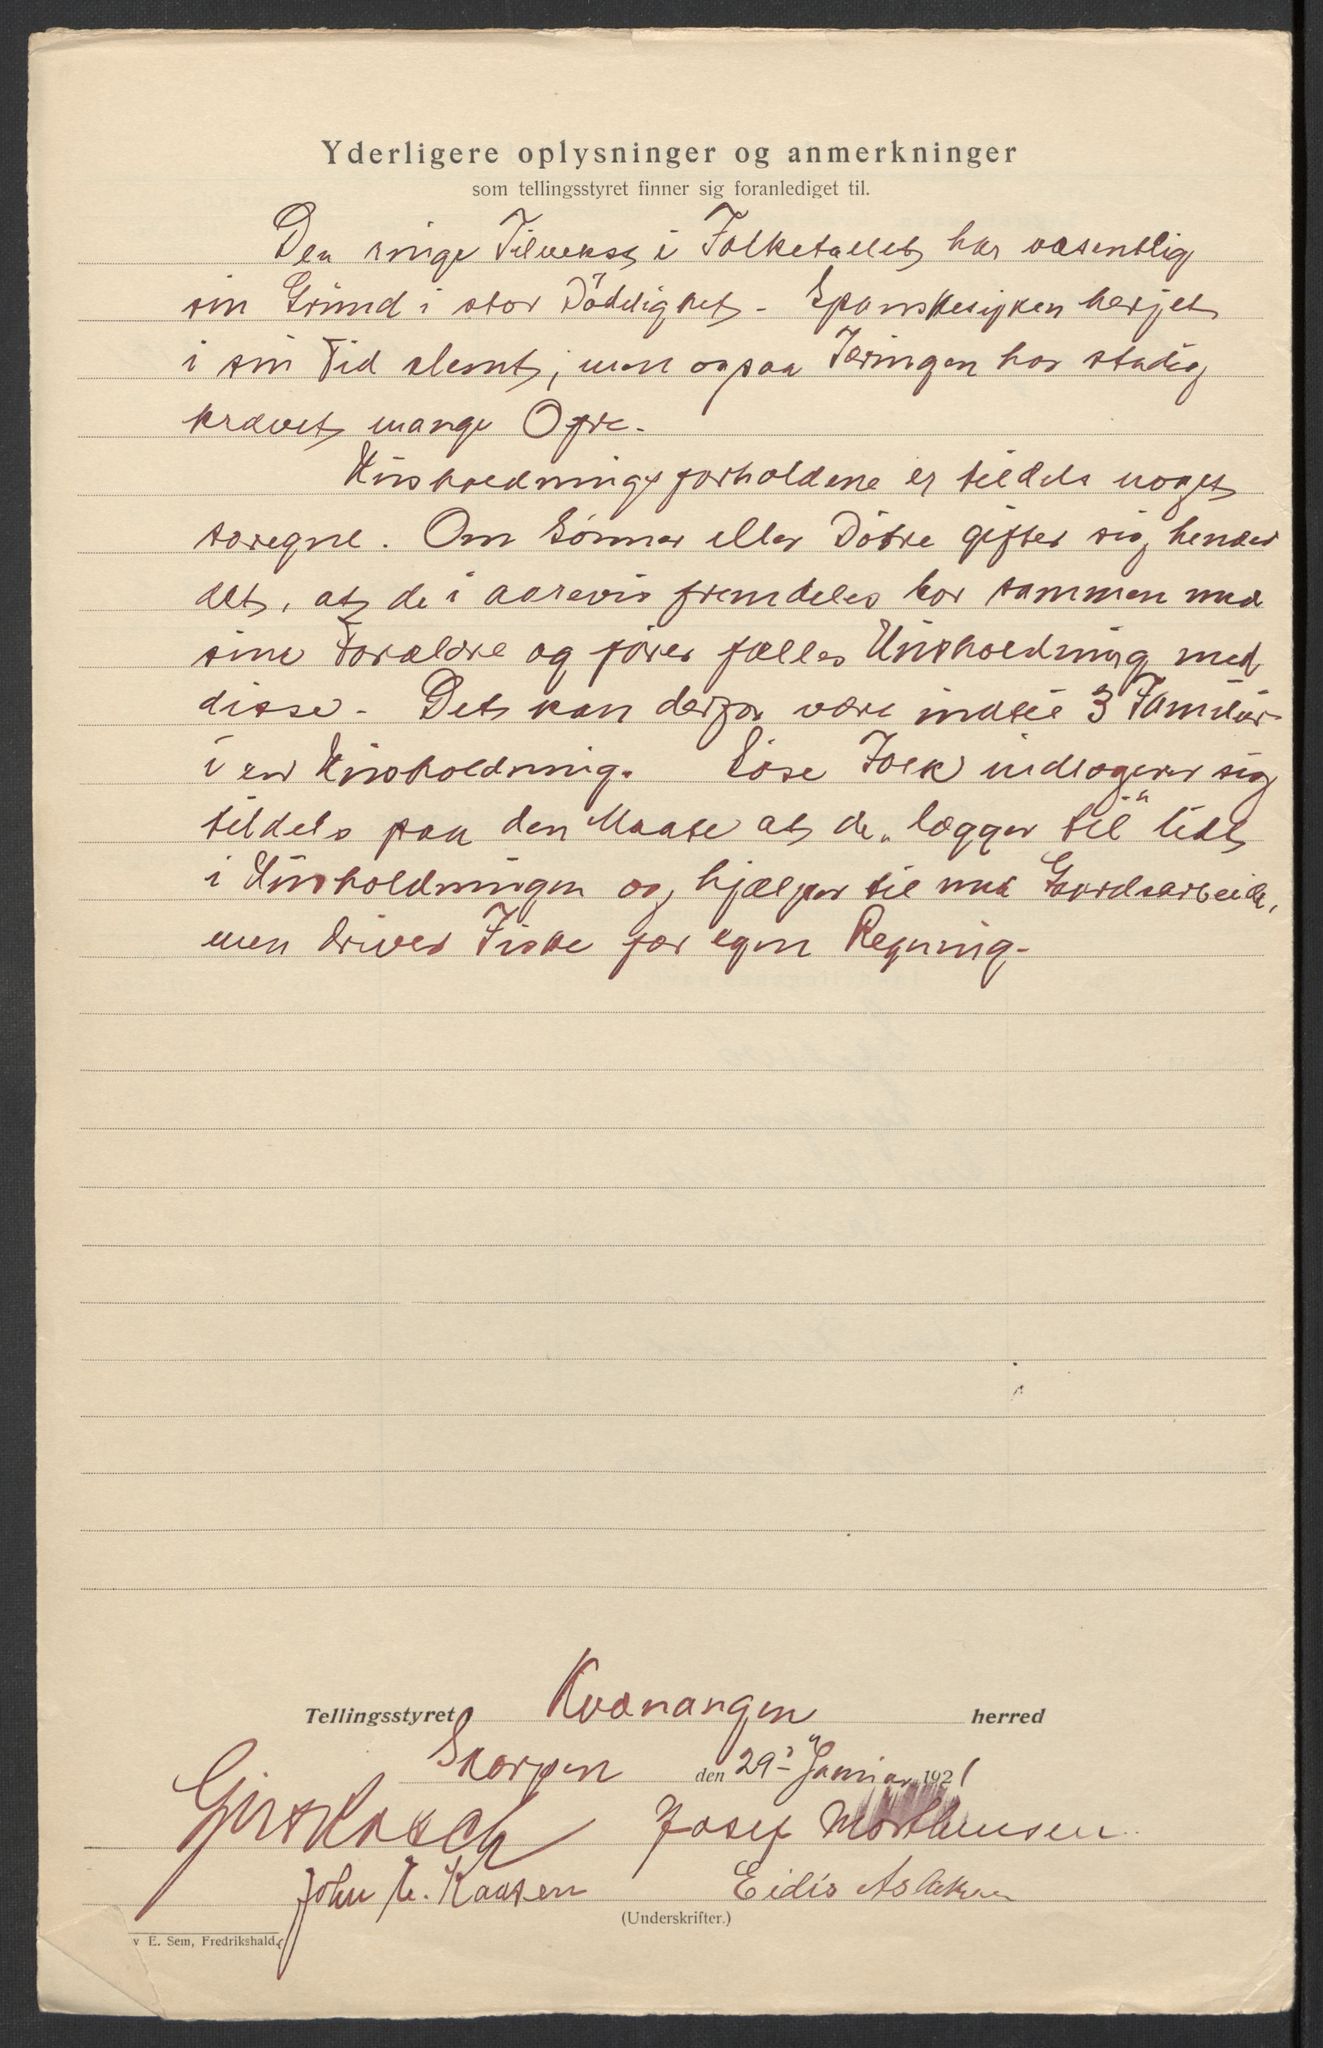 Yderligere oplysninger og anmerkninger
som tellingsstyret finner sig foranlediget til.
Den ringe Tilvekst i Folketallet har væsentlig
sin Grund i stor Dödelighet. Spanskesyken herjet
i sin Tid slemt, men ogsaa Tæringen har stadig
krævet mange Ofre.
Husholdningsforholdene er tildels noget
særegne. Om Sønner eller Døtre gifter sig, hender
det, at de i aarevis fremdeles bor sammen med
sine Forældre og fører fælles Husholdning med
disse. Det kan derfor være indtil 3 Familier
i en Husholdning. Löse Folk indlogerer sig
tildels paa den Maate at de „lægger til" litt
i Husholdningen og hjælper til med Gaardsarbeide,
men driver Fiske for egen Regning.
Tellingsstyret Kvænangen herred
Skorpen den 29' Januar 1921
Josef Mörthensen
John E. Kaasen Eidis Aslaksen
(Underskrifter.)
v E. Sem, Fredrikshald.